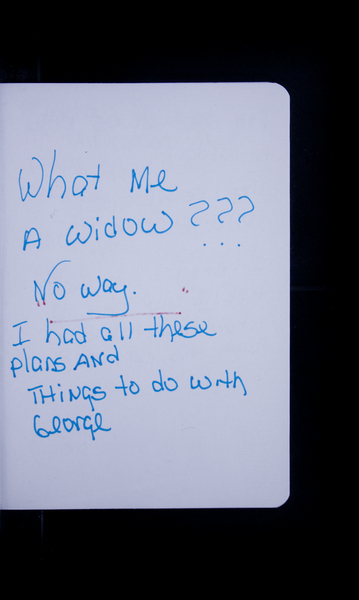 What Me
A Widow ???
No way.
I had all these
plans AND
THINgs to do with
George